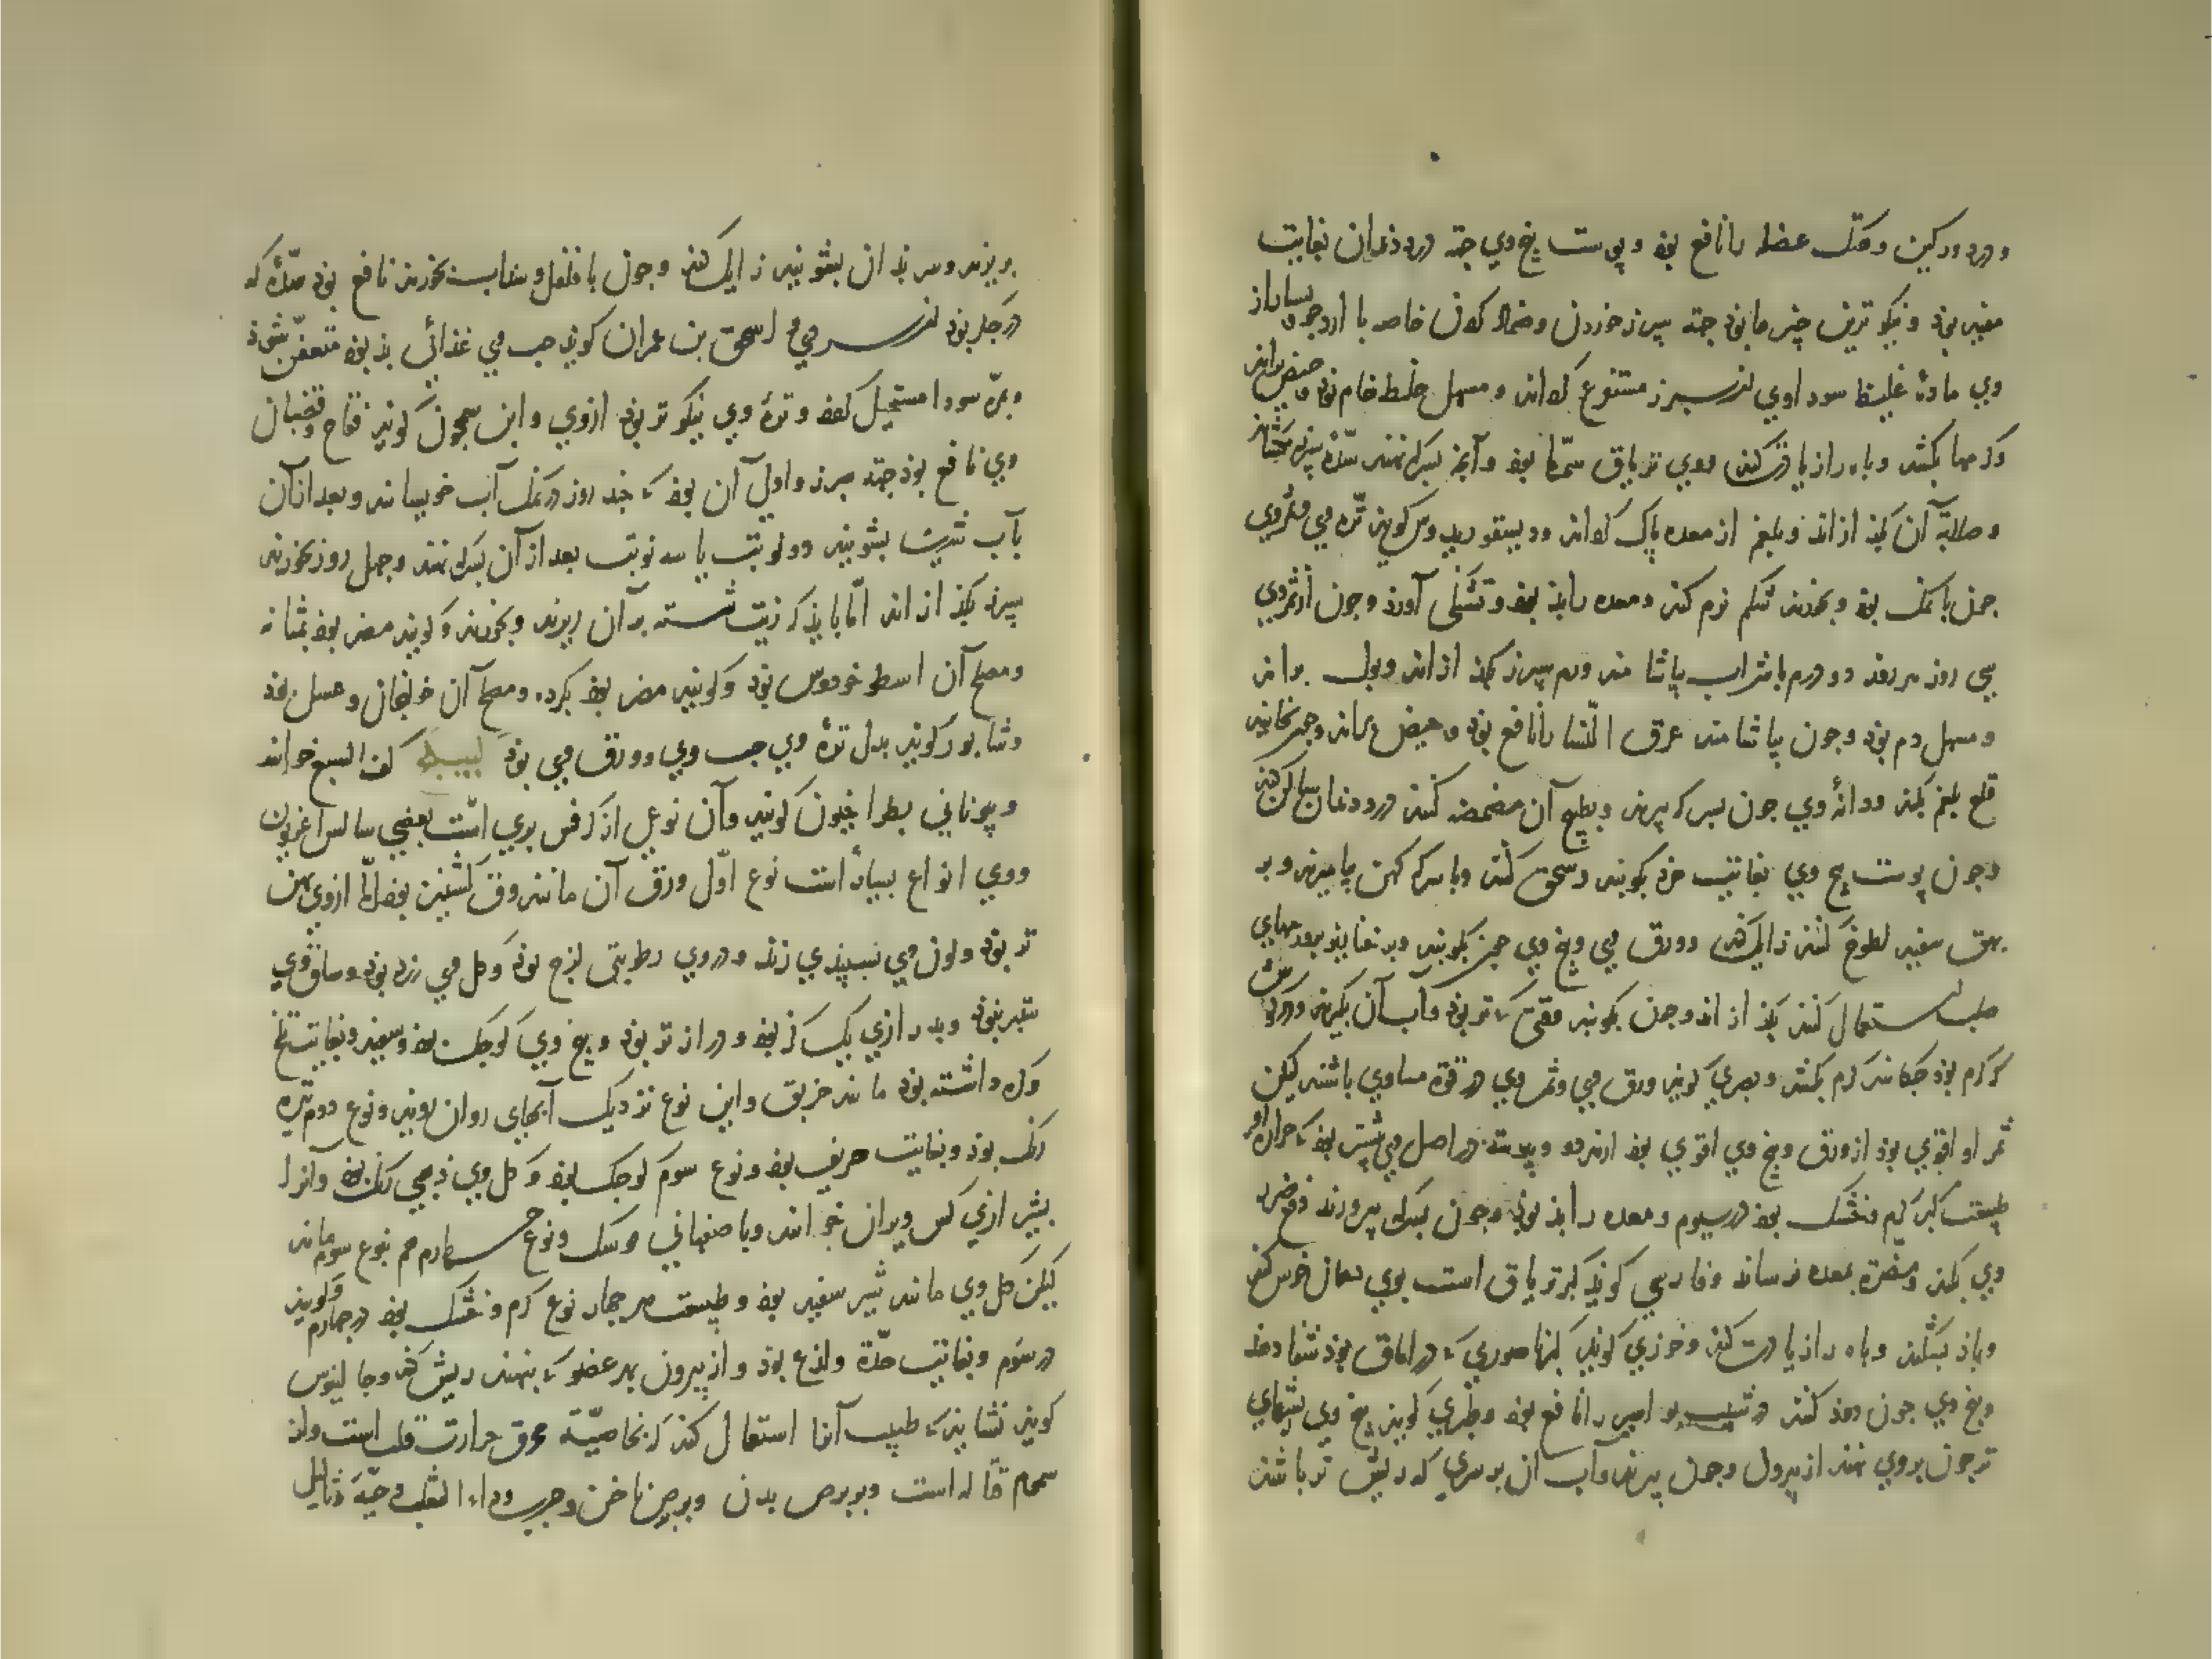 و درد ورکین و هتک عضله را نافع بود و پوست بیخ وی جهة درد دندان بغایت
مفید بود و نیکوترین چیزها بود جهة سپرز خوردن و ضماد کردن خاصه با آرد جو و بسیار از
وی مادهٔ غلیظ سوداوی از سپرز مستفرغ گرداند و مسهل خلط خام بود و حیض براند
و کرمها بکشد و باه را زیادت کند و وی تریاق سمها بود و آنچه بسرکه نهند سدهٔ سپرز بگشاید
و صلابة آن بگذازاند و بلغم از معده پاک گرداند و دیسقوریدوس کوید ثمره وی و ... وی
چون با نمک بود و بخورند شکم نرم کند و معده را بد بود و تشنگی آورد و چون از ثمر وی
سی روز هر روز دو درم با شراب بیاشامند ورم سپرز بگذازاند و بول براند
و مسهل دم بود و چون بیاشامند عرق النسا را نافع بود و حیض براند و چون بخایند
قلع بلغم بکند و دانهٔ وی چون بسرکه بپزند و بطبیخ آن مضمضه کنند درد دندان ساکن کند
و چون پوست بیخ وی بغایت خرد بکوبند و سحق کنند و با سرکه کهن بیامیزند و بر
بهق سفید لطوخ کنند زایل کند و ورق وی و بیخ وی چون بکوبند و بر خنازیر و ورمهای
صلب استعمال کنند بگذازاند و چون بکوبند وقتی که تر بود و آب آن بگیرند و در گوش
که کرم بود چکانند کرم بکشد و بصری کوید ورق وی و ثمر وی در قوة مساوی باشند لیکن
ثمر او اقوی بود از ورق و بیخ وی اقوی بود از هر دو و پوسته در اصل وی بیشتر بود که حرارة او
طبیعت کبر گرم و خشک بود در سیوم و معده را بد بود و چون بسرکه پرورند دفع ضرر
وی بکند و مضرة بمعده نرساند و فارسی کوید کبر تریاق است بوی دهان خوش کند
و باد بشکند و باه را زیادت کند و خوزی کوید کبر ... که در ... بود شفا دهد
و بیخ وی چون دود کنند در شیب بواسیر را نافع بود و طبری کوید بیخ وی ریشهای
تر چون بر وی نهند از بیرون و چون بپزند و آب آن بر سری که ریش تر باشد
بریزند و سر بدان بشویند زایل کند و چون با فلفل و سداب بخورند نافع بود سدهٔ که
در جگر بود از سردی و اسحق بن عمران کوید حب وی غذائی بد بود متعفن شود
و بمرّه سودا مستحیل کردد و ثمرهٔ وی نیکوتر بود از وی و ابن سمجون کوید فقاح و قضبان
وی نافع بود جهة سپرز و اولی آن بود که چند روز در نمک آب خویسانند و بعد از آن
بآب شیرین بشویند دو نوبت یا سه نوبت بعد از آن بسرکه نهند و چهل روز بخورند
سپرز بگذازاند امّا باید که زیت شسته بر آن ریزند و بخورند و کویند مضر بود بمثانه
و مصلح آن اسطوخودوس بود و کویند مضر بود بکرده و مصلح آن خولنجان و عسل بود
و شابور کوید بدل ثمرهٔ وی حب وی و ورق وی بود کبیکج کف السبع خوانند
و بیونانی بطراخیون کویند و آن نوعی از کرفس بری است بعضی ...
و وی انواع بسیار است نوع اوّل ورق آن مانند ورق کشنیز بود امّا از وی پهن
تر بود و لون وی بسپیدی زند و در وی رطوبتی لزج بود و کل وی زرد بود و ساق وی
سطبر نبود و بدرازی یک گز بود و درازتر بود و بیخ وی کوچک بود و سفید و بغایت تلخ
و کره داشته بود مانند خربق و این نوع نزدیک آبهای روان روید و نوع دوم تیره
رنگ بود و بغایت حریف بود و نوع سوم کوچک بود و کل وی ذهبی رنگ بود و آنرا
بشیرازی کس ویران خوانند و باصفهانی موسک و نوع چهارم هم بنوع سوم مانند
لیکن کل وی مانند شیر سفید بود و طبیعت هر چهار نوع گرم و خشک بود در چهارم و کویند
در سوم و بغایت حدّة و لذع بود و از بیرون بهر عضو که بنهند ریش کند و جالینوس
کوید نشاید که طبیب آنرا استعمال کند که بخاصیّة محرق حرارت قلب است و از
سموم قتاله است و بر برص بدن و برص ناخن و جرب و داء الثعلب و حیّة و ثآلیل